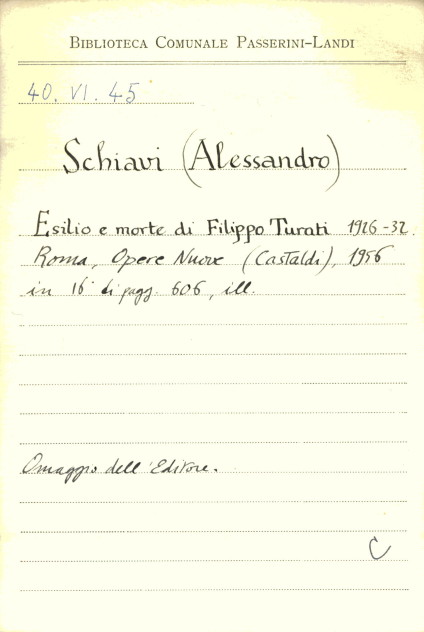 BIBLIOTECA COMUNALE PASSERINI-LANDI
40. VI. 45
Schiavi (Alessandro)
Esilio e morte di Filippo Turati 1926-32.
Roma, Opere Nuove (Castaldi), 1956
in 16° di pagg. 606, ill.
Omaggio dell'Editore.
C